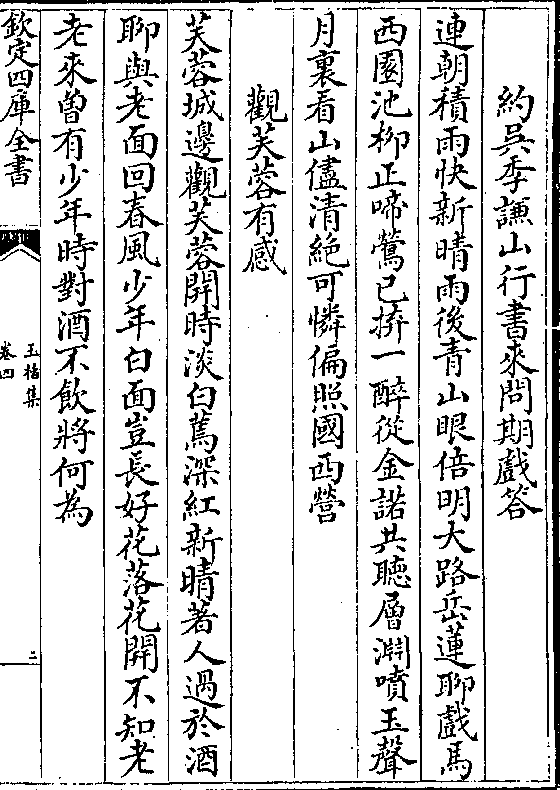 約吳季謙山行書來問期戲答
連朝積雨快新晴雨後青山眼倍明大路岳蓮聊戲馬
西園池柳正啼鶯已拚一醉從金諾共聽層淵噴玉聲
月裏看山儘清絶可憐偏照國西營
觀芙蓉有感
芙蓉城邊觀芙蓉開時淡白蔫深紅新晴著人過於酒
聊與老面回春風少年白面豈長好花落花開不知老
老來曾有少年時對酒不飲將何為
欽定四庫全書
玉楮集
卷四
二